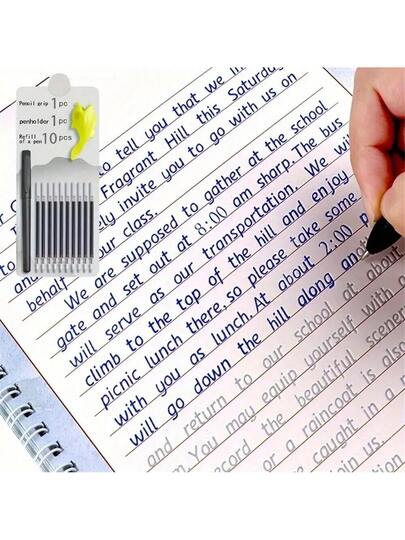 Pencil grip 1 pc
penholder 1 pc
Refill of a pen 10 pcs
to tell you that we
Fragrant Hill this Saturday
invite you to go with us on
our class.
We are supposed to gather at the school
gate and set out at 8:00 am sharp. The bus
will serve as our transportation. We
climb to the top of the hill and enjoy
picnic lunch there, so please take some
with you as lunch. At about 2:00
will go down the hill along
and return to our school at about
You may equip yourself with
record the beautiful
or a raincoat is also
caught in a
join us.